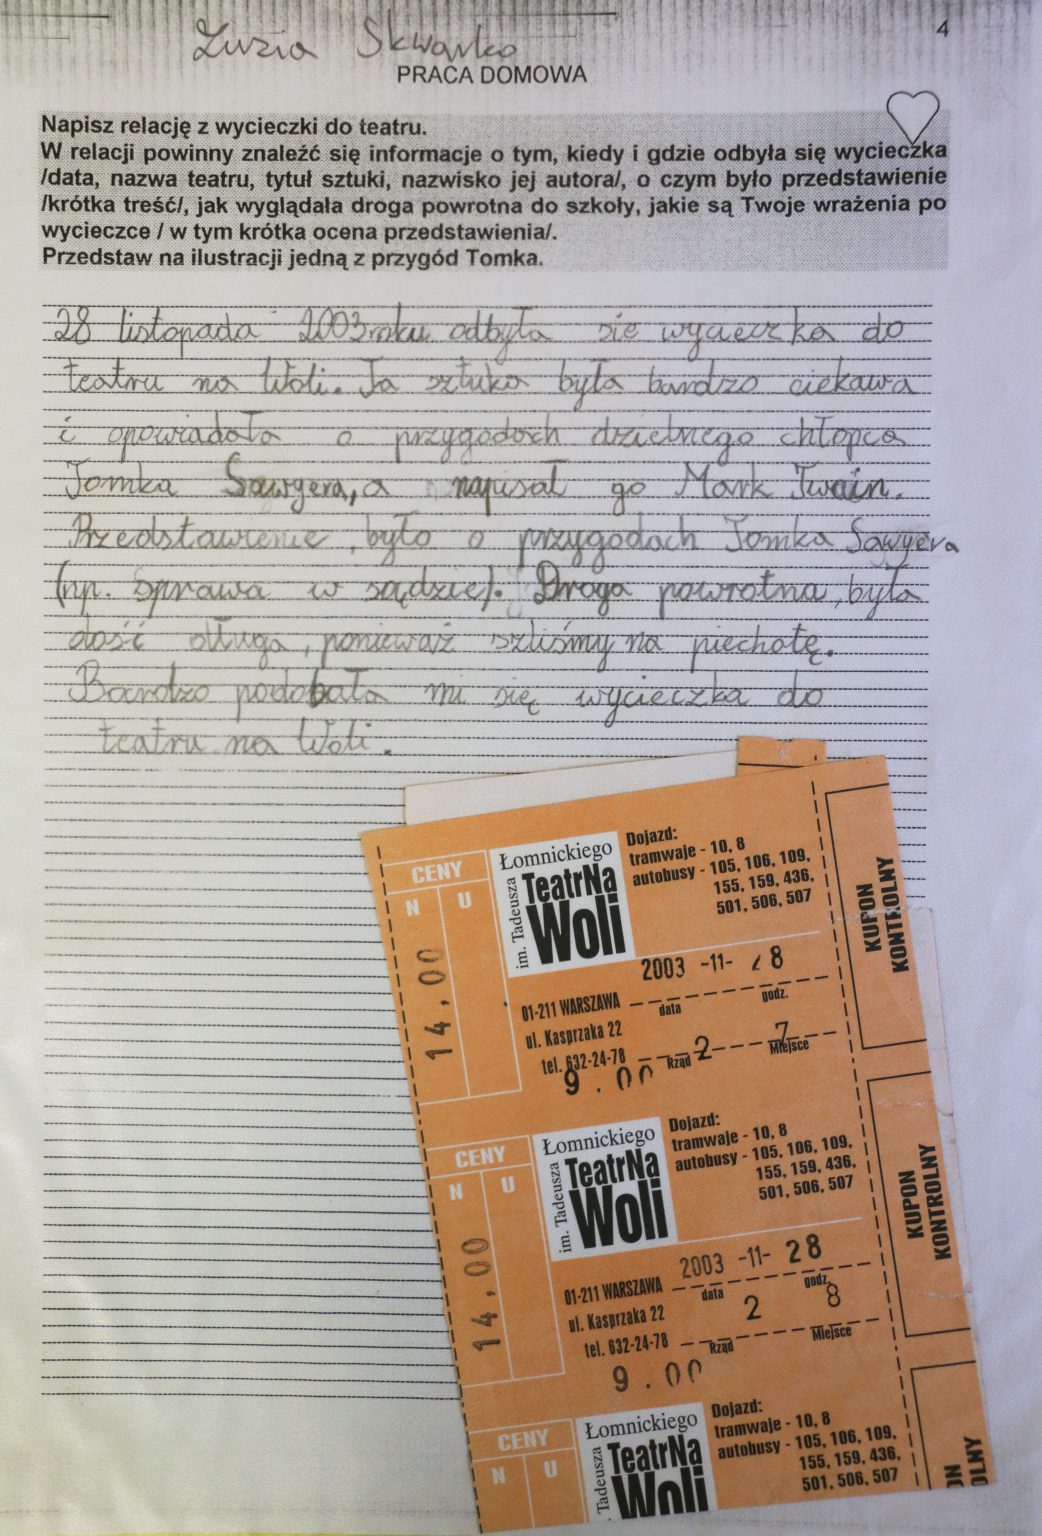 Zuzia Skwarko
4
PRACA DOMOWA
Napisz relację z wycieczki do teatru.
W relacji powinny znaleźć się informacje o tym, kiedy i gdzie odbyła się wycieczka
/data, nazwa teatru, tytuł sztuki, nazwisko jej autora/, o czym było przedstawienie
/krótka treść/, jak wyglądała droga powrotna do szkoły, jakie są Twoje wrażenia po
wycieczce / w tym krótka ocena przedstawienia/.
Przedstaw na ilustracji jedną z przygód Tomka.
28 listopada 2003 roku odbyła sie wycieczka do
teatru na Woli. Ta sztuka była bardzo ciekawa
i opowiadała o przygodach dzielnego chłopca
Tomka Sawyera, a napisał go Mark Twain.
Przedstawienie, było o przygodach Tomka Sawyera
(np. Sprawa w sądzie). Droga powrotna, była
dość długa, ponieważ szliśmy na piechotę.
Bardzo podobała mi się wycieczka do
teatru na Woli.
CENY
N U
14,00
im. Tadeusza
Łomnickiego
TeatrNa
Woli
Dojazd:
tramwaje - 10, 8
autobusy - 105, 106, 109,
155, 159, 436,
501, 506, 507
2003 -11- 28
data godz.
01-211 WARSZAWA
ul. Kasprzaka 22
tel. 632-24-78
2 7
Rząd Miejsce
9.00
KUPON
KONTROLNY
CENY
N U
14,00
im. Tadeusza
Łomnickiego
TeatrNa
Woli
Dojazd:
tramwaje - 10, 8
autobusy - 105, 106, 109,
155, 159, 436,
501, 506, 507
2003 -11- 28
data godz.
01-211 WARSZAWA
ul. Kasprzaka 22
tel. 632-24-78
2 8
Rząd Miejsce
9.00
KUPON
KONTROLNY
CENY
N U
Tadeusza
Łomnickiego
TeatrNa
Woli
Dojazd:
tramwaje - 10, 8
autobusy - 105, 106, 109,
155, 159, 436,
501, 506, 507